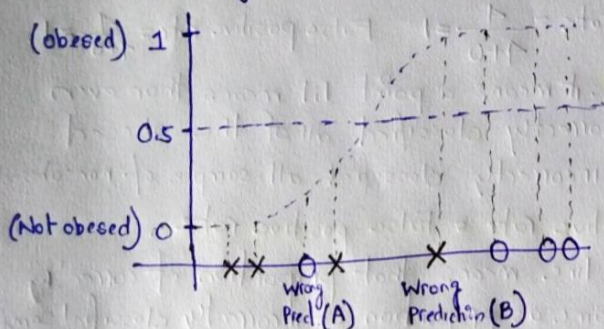 (obesed) 1
0.5
(Not obesed) 0
x x O x x O O O
Wrong Wrong
Pred (A) Prediction (B)